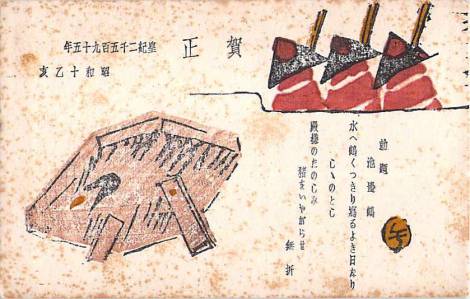 賀正
皇紀二千五百九十五年
昭和十乙亥
勅題
池邊鶴
水へ鶴くつきり寫るよき日なり
しゝのとし
殿様のたのしみ
猪をいやがらせ